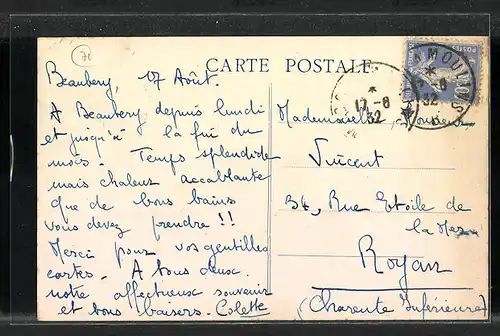 71
CARTE POSTALE
Beaubery, 17 Août.
A Beaubery depuis lundi
et jusqu'à la fin du
mois. Temps splendide
mais chaleur accablante
que de bons bains
vous devez prendre !!
Merci pour vos gentilles
cartes. A tous deux.
notre affectueux souvenir
et bons baisers. Colette
17-8
32
-8
32
Mademoiselle, Monsieur
Vincent
34, Rue Etoile de
la Mer
Royan
(Charente Inférieure)